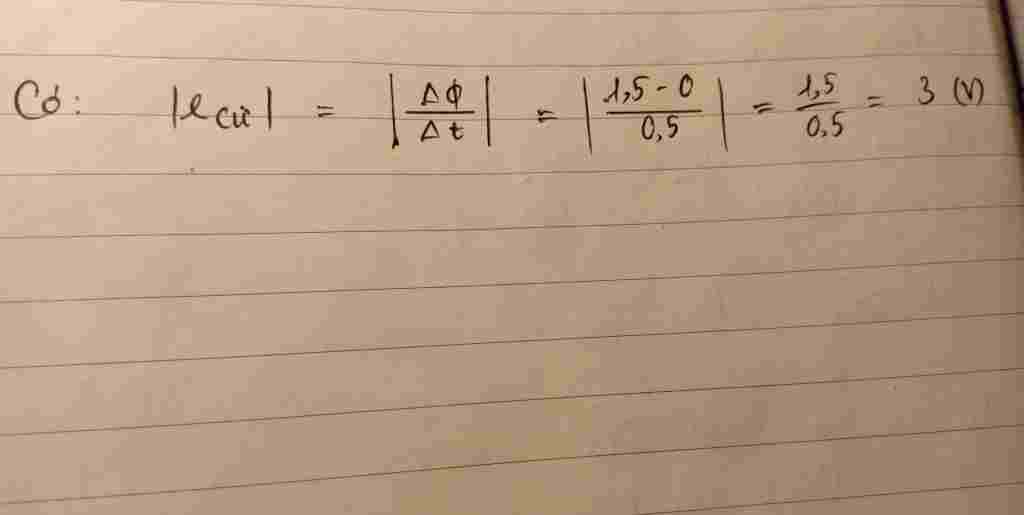 Có: |e cư| = |ΔΦ/Δt| = |1,5 - 0/0,5| = 1,5/0,5 = 3 (V)